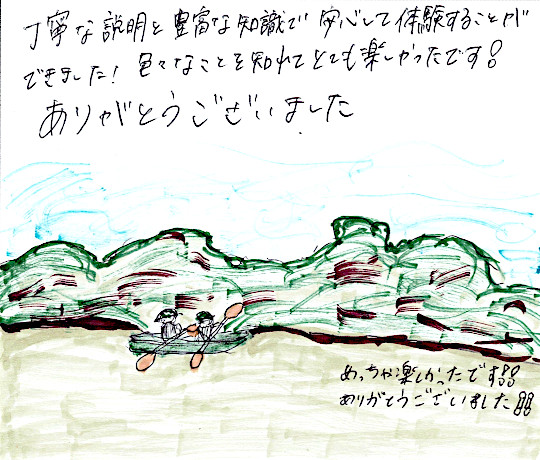 丁寧な説明と豊富な知識で安心して体験することが
できました!色々なことを知れてとても楽しかったです!!
ありがとうございました
めっちゃ楽しかったです!!
ありがとうございました!!